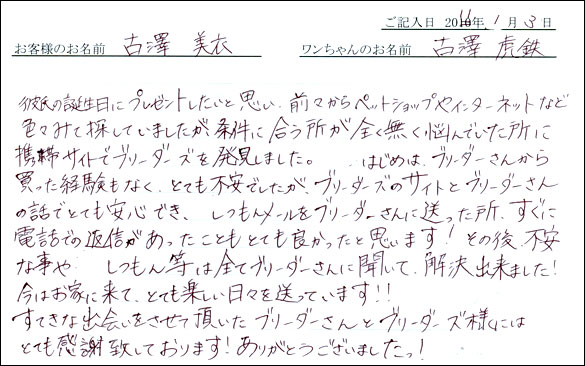 ご記入日 2011年 1月 3日
お客様のお名前 古澤 美衣 ワンちゃんのお名前 古澤 虎鉄
彼氏の誕生日にプレゼントしたいと思い、前々からペットショップやインターネットなど
色々みて探していましたが条件に合う所が全く無く悩んでいた所に
携帯サイトでブリーダーズを発見しました。 はじめは、ブリーダーさんから
買った経験もなく、とても不安でしたが、ブリーダーズのサイトとブリーダーさん
の話でとても安心でき、しつもんメールをブリーダーさんに送った所、すぐに
電話での返信があったこともとても良かったと思います!その後、不安
な事や しつもん等は全てブリーダーさんに聞いて、解決出来ました!
今はお家に来て、とても楽しい日々を送っています!!
すてきな出会いをさせて頂いたブリーダーさんとブリーダーズ様には
とても感謝致しております!ありがとうございましたっ!